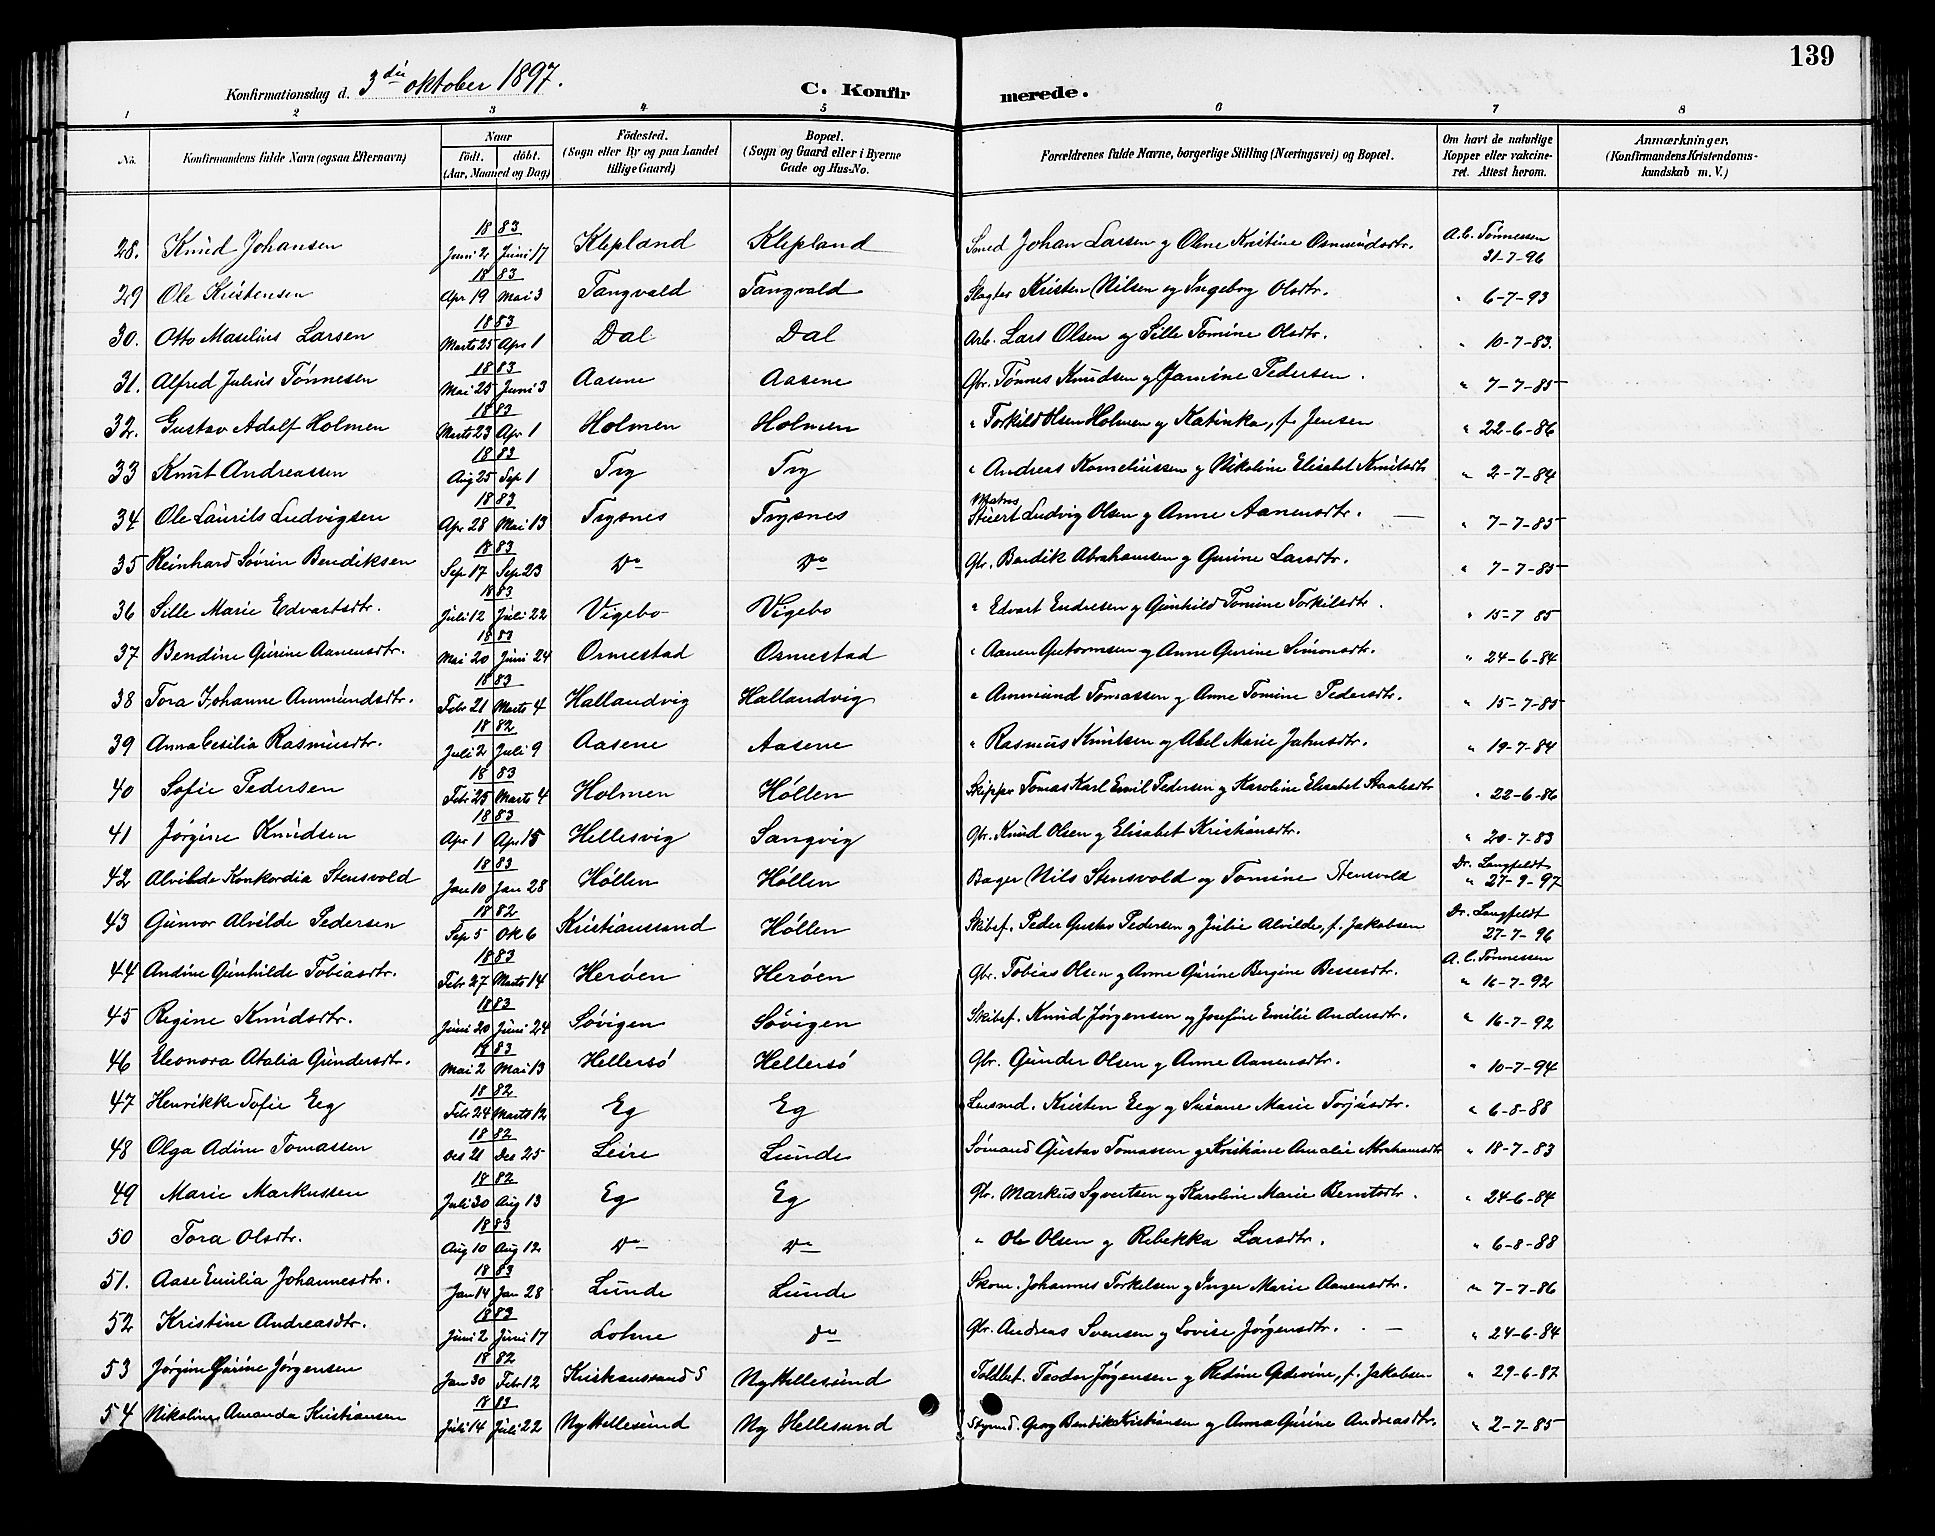 139
Konfirmationsdag d. 3die oktober 1897. C. Konfirmerede.
1 2 3 4 5 6 7 8
No. Konfirmandens fulde Navn (ogsaa Efternavn) Naar født. døbt. (Aar, Maaned og Dag) Fødested. (Sogn eller By og paa Landet tillige Gaard) Bopæl. (Sogn og Gaard eller i Byerne Gade og Hus-No. Forældrenes fulde Navne, borgerlige Stilling (Næringsvei) og Bopæl. Om havt de naturlige Kopper eller vakcineret. Attest herom. Anmærkninger. (Konfirmandens Kristendomskundskab m. V.)
28. Knud Johansen 1883 Juni 2 Juni 17 Klepland Klepland Smed Johan Larsen og Olene Kristine Osmundsdtr. A. C. Tønnessen 31-7-96
29 Ole Kristensen 1883 Apr 19 Mai 3 Tangvald Tangvald Slagter Kristen Nilsen og Ingeborg Olsdtr. " 6-7-93
30. Otto Maselius Larsen 1883 Marts 25 Apr 1 Dal Dal Arb. Lars Olsen og Sille Tomine Olsdtr. " 10-7-83.
31. Alfred Julius Tønnesen 1883 Mai 25 Juni 3 Aasene Aasene Gbr. Tønnes Knudsen og Jamine Pedersen. " 7-7-85
32. Gustav Adolf Holmen 1883 Marts 23 Apr 1 Holmen Holmen " Torkild Olsen Holmen og Katinka, f. Jensen " 22-6-86
33 Knut Andreassen 1883 Aug 25 Sep 1 Try Try " Andreas Korneliussen og Nikoline Elisabet Knutsdtr " 2-7-84
34 Ole Laurits Ludvigsen 1883 Apr 28 Mai 13 Trysnes Trysnes Matros Ludvig Olsen og Anne Aanensdtr. — " 7-7-85
35 Reinhard Søvrin Bendiksen 1883 Sep 17 Sep 23 Do Do Gbr. Bendik Abrahamsen og Gurine Larsdtr. " 7-7-85
36 Sille Marie Edvartsdtr. 1883 Juli 12 Juli 22 Vigebo Vigebo " Edvart Endresen og Gunhild Tomine Torkilsdtr. " 15-7 85
37 Bendine Gurine Aanensdtr. 1883 Mai 20 Juni 24 Ormestad Ormestad " Aanen Guttormsen og Anne Gurine Simonsdtr. " 24-6-84
38 Tora Johanne Ammundsdtr. 1883 Febr 21 Marts 4 Hallandvig Hallandvig " Ammund Tomassen og Anne Tomine Pedersdtr. " 15-7-85
39 Anna Cesilia Rasmusdtr. 1882 Juli 2 Juli 9 Aasene Aasene " Rasmus Knutsen og Abel Marie Jahnsdtr. " 19-7-84
40 Sofie Pedersen 1883 Febr 25 Marts 4 Holmen Høllen Skipper Tomas Karl Emil Pedersen og Karoline Elisabet Staalesdtr " 22-6-86
41 Jørgine Knudsen 1883 Apr 1 Apr 15 Hellesvig Sangvig Gbr. Knud Olsen og Elisabet Kristiansdtr. " 20-7-83
42 Alvilde Konkordia Stensvold 1883 Jan 10 Jan 28 Høllen Høllen Bager Nils Stensvold og Tomine Stensvold Dr. Langfeldt " 27-9-97
43 Gunvor Alvilde Pedersen 1882 Sep 5 Ok 6 Kristianssand Høllen Skibsf. Peder Gustav Pedersen og Julie Alvilde, f. Jakobsen Dr. Langfeldt 27-7-96
44 Andine Gunhilde Tobiasdtr. 1883 Febr 27 Marts 14 Herøen Herøen Gbr. Tobias Olsen og Anne Gurine Bergine Bessesdtr. A. C. Tønnessen " 16-7-92
45 Regine Knudsdtr. 1883 Juni 20 Juni 24 Søvigen Søvigen Skibsf. Knud Jørgensen og Josefine Emilie Andersdtr. " 16-7-92
46 Eleonora Atalia Gundersdtr. 1883 Mai 2 Mai 13 Hellersø Hellersø Gbr. Gunder Olsen og Anne Aanensdtr. " 10-7-94
47 Henrikke Sofie Eeg 1882 Febr 24 Marts 12 Eg Eg Lensmd. Kristen Eeg og Susane Marie Torjusdtr. " 6-8-88
48 Olga Adine Tomassen 1882 Des 21 Des 25 Leire Lunde Sømand Gustav Tomassen og Kristiane Amalie Abrahamsdtr " 18-7-83
49 Marie Markussen 1882 Juli 30 Aug 13 Eg Eg Gbr. Markus Syvertsen og Karoline Marie Berntsdtr. " 24-6-84
50 Tora Olsdtr. 1883 Aug 10 Aug 12 Do Do " Ole Olsen og Rebekka Larsdtr. " 6-8-88
51. Aase Emilia Johannesdtr. 1883 Jan 14 Jan 28 Lunde Lunde Skom. Johannes Torkelsen og Inger Marie Aanensdtr. " 7-7-86
52 Kristine Andreasdtr. 1883 Juni 2 Juni 17 Lohne Do Gbr. Andreas Svensen og Lovise Jørgensdtr. — " 24-6-84
53 Jørgine Gurine Jørgensen 1882 Jan 30 Febr 12 Kristianssand S Ny Hellesund Toldbet. Teodor Jørgensen og Redine Gedevine, f. Jakobsen " 29-6-87
54 Nikoline Amanda Kristiansen 1883 Juli 14 Juli 22 Ny Hellesund Ny Hellesund Styrmd. Georg Bendik Kristiansen og Anna Gurine Andreasdtr. " 2-7-85